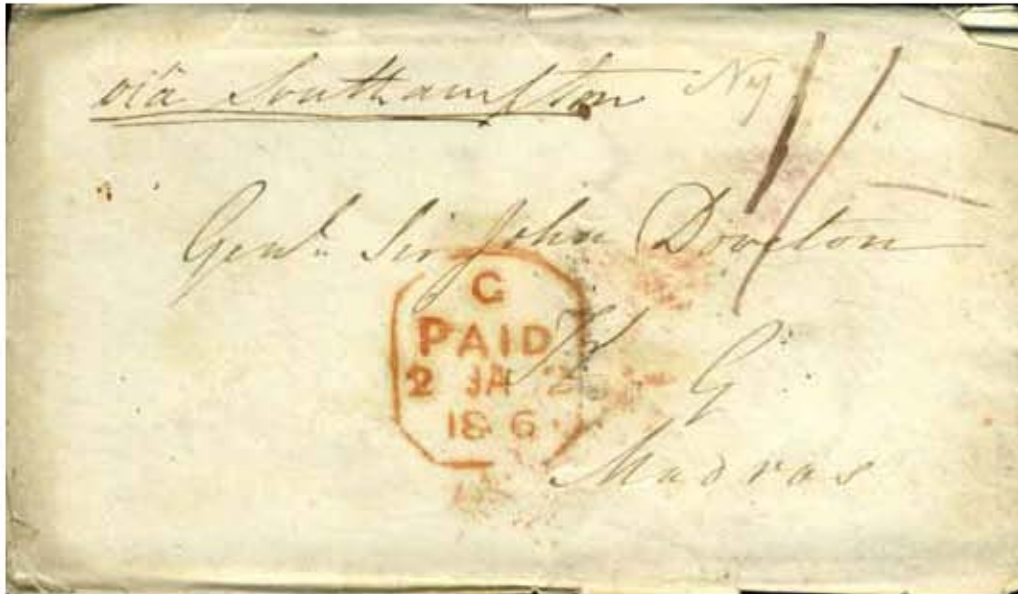 via Southampton
1/
Genl. Sir John Doveton
G
PAID
2 JA 2
18 6
G
Madras